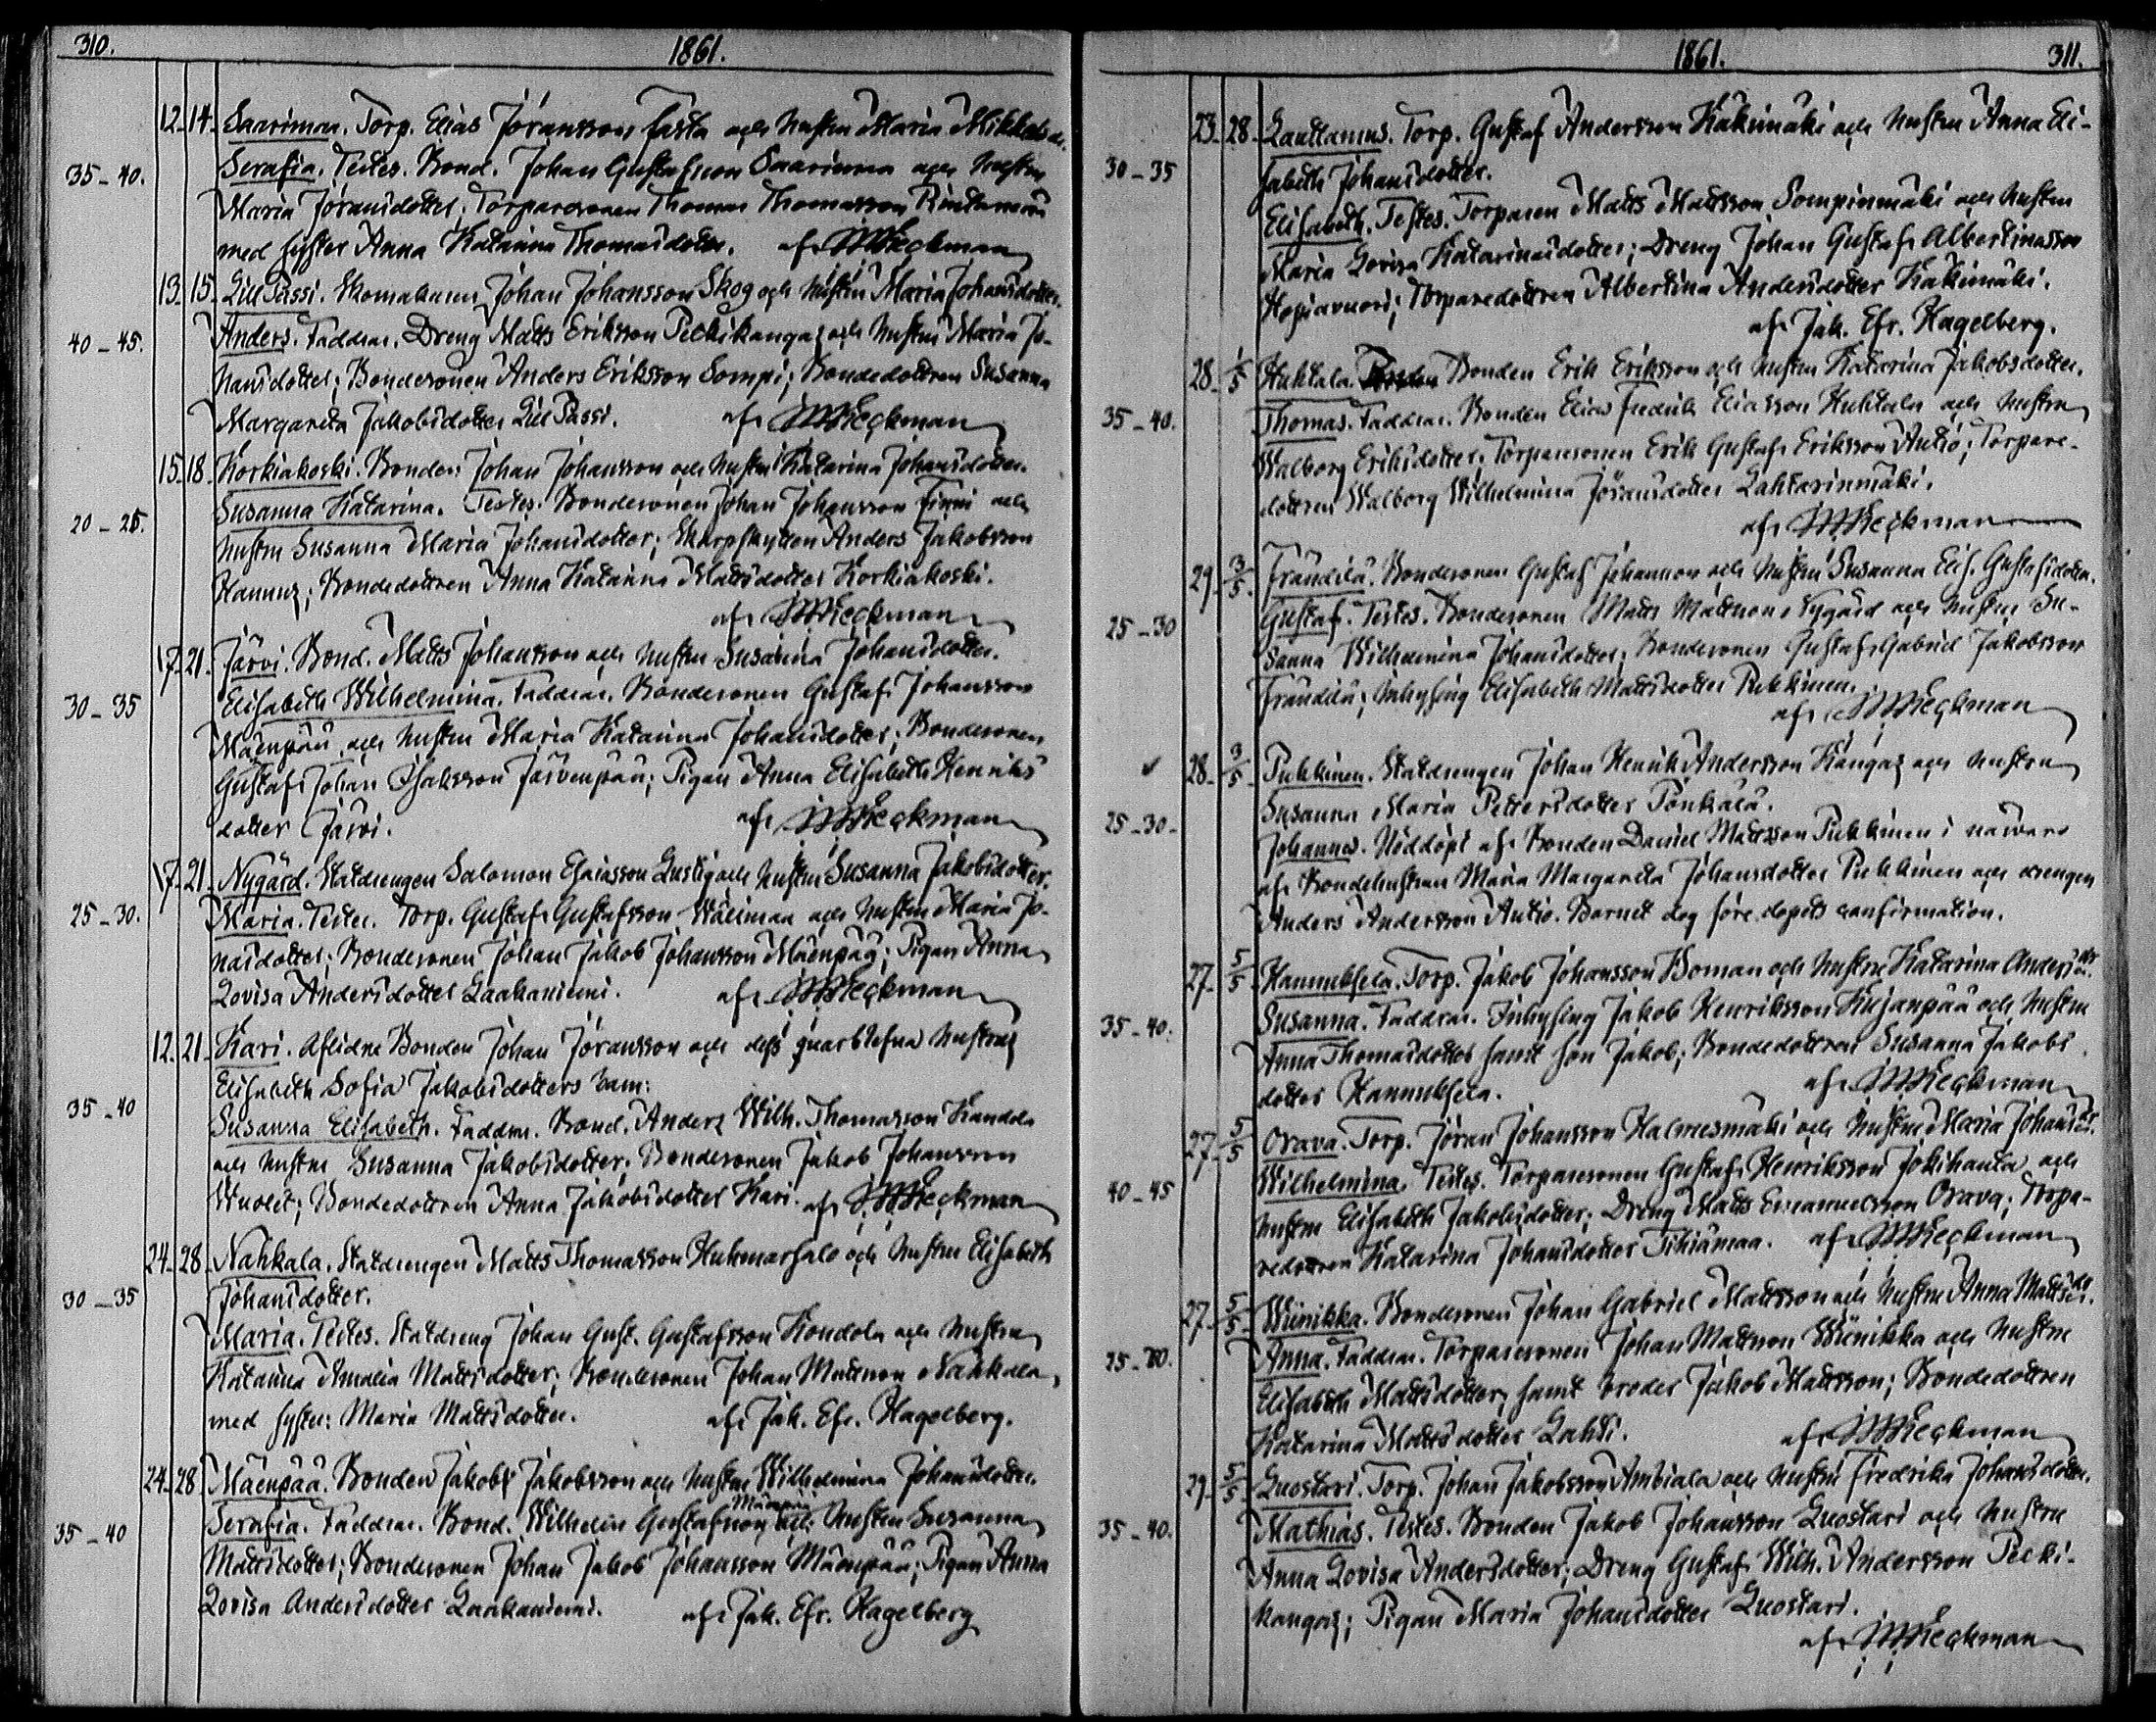 310.
1861.
12. 14. Saarimaa. Torp. Elias Jöransson Jasta och hustru Maria Mikkelsdr.
35 - 40. Serafia. Testes. Bond. Johan Gustafsson Saarimaa och hustru
Maria Jöransdotter; Torparesonen Thomas Thomasson
med syster Anna Katarina Thomasdotter. af Heckman
13. 15. Lill Passi. Skomakaren Johan Johansson Skog och hustru Maria Johansdotter.
40 - 45. Anders. Faddrar. Dreng Matts Eriksson Peckikangas och hustru Maria Jo-
hansdotter; Bondesonen Anders Eriksson Sompi; Bondedottren Susanna
Margareta Jakobsdotter Lill Passi. af Heckman
15. 18. Korkiakoski. Bonden Johan Johansson och hustru Katarina Johansdotter.
20 - 25. Susanna Katarina. Testes. Bondesonen Johan Johansson Finni och
hustru Susanna Maria Johansdotter; Skarpskytten Anders Jakobsson
Hannus; Bondedottren Anna Katarina Mattsdotter Korkiakoski.
af Heckman
17. 21. Järvi. Bond. Matts Johansson och hustru Susanna Johansdotter.
30 - 35 Elisabeth Wilhelmina. Faddrar. Bondesonen Gustaf Johansson
Mäenpää och hustru Maria Katarina Johansdotter; Bondesonen
Gustaf Johan Isaksson Järvenpää; Pigan Anna Elisabeth Henriks
dotter Järvi. af Heckman
17. 21. Nygård. Statdrengen Salomon Esaiasson Lustig och hustru Susanna Jakobsdotter.
25 - 30. Maria. Testes. Torp. Gustaf Gustafsson Wälimaa och hustru Maria Jo-
nasdotter; Bondesonen Johan Jakob Johansson Mäenpää; Pigan Anna
Lovisa Andersdotter Laakaniemi. af Heckman
12. 21. Kari. Aflidne Bonden Johan Jöransson och dess qvarblefna hustru
Elisabeth Sofia Jakobsdotters barn:
35 - 40 Susanna Elisabeth. Faddrar. Bond. Anders Wilh. Thomasson Kandola
och hustru Susanna Jakobsdotter; Bondesonen Jakob Johansson
Wuolet; Bondedottren Anna Jakobsdotter Kari. af Heckman
24. 28. Nahkala. Statdrengen Matts Thomasson Huhmarsalo och hustru Elisabeth
30 - 35 Johansdotter.
Maria. Testes. Statdreng Johan Gust. Gustafsson Kondola och hustru
Katarina Amalia Mattsdotter; Bondesonen Johan Mattsson Nahkala
med syster: Maria Mattsdotter. af Jak. Efr. Hagelberg.
24. 28. Mäenpää. Bonden Jakob Jakobsson och hustru Wilhelmina Johansdotter.
35 - 40 Serafia. Faddrar. Bond. Wilhelm Gustafsson Mäenpää och hustru Susanna
Mattsdotter; Bondesonen Johan Jakob Johansson Mäenpää; Pigan Anna
Lovisa Andersdotter Laakaniemi. af Jak. Efr. Hagelberg
1861.
311.
23. 28. Lauttamus. Torp. Gustaf Andersson Käkimäki och hustru Anna Eli-
30 - 35 sabeth Johansdotter.
Elisabeth. Testes. Torparen Matts Mattsson Sompinmäki och hustru
Maria Lovisa Katarinasdotter; Dreng Johan Gustaf Albertinasson
Hopiavuori; Torparedottren Albertina Andersdotter Käkimäki.
af Jak. Efr. Hagelberg.
28. 1/5 Huhtala. Bonden Erik Eriksson och hustru Katarina Jakobsdotter.
35 - 40. Thomas. Faddrar. Bonden Elias Fredrik Eliasson Huhtala och hustru
Walborg Eriksdotter; Torparesonen Erik Gustaf Eriksson Antio; Torpare-
dottren Walborg Wilhelmina Jöransdotter Lahtarinmäki.
af Heckman
29. 3/5. Frändilä. Bondesonen Gustaf Johansson och hustru Susanna Elis. Gustafsdotter.
25 - 30 Gustaf. Testes. Bondesonen Matts Mattsson Nygård och hustru Su-
sanna Wilhelmina Johansdotter; Bondesonen Gustaf Gabriel Jakobsson
Frändilä; Inhysing Elisabeth Mattsdotter Pukkinen.
af Heckman
28. 3/5. Pukkinen. Statdrengen Johan Henrik Andersson Kangas och hustru
25 - 30. Susanna Maria Pettersdotter Pänkälä.
Johannes. Nöddöpt af Bonden Daniel Mattsson Pukkinen i närvaro
af Bondehustrun Maria Margareta Johansdotter Pukkinen och drengen
Anders Andersson Antio. Barnet dog före dopets confirmation.
27. 5/5 Hannuksela. Torp. Jakob Johansson Boman och hustru Katarina Andersdr.
35 - 40. Susanna. Faddrar. Inhysing Jakob Henriksson Kujanpää och hustru
Anna Thomasdotter samt son Jakob; Bondedottren Susanna Jakobs
dotter Hannuksela. af Heckman
27. 5/5 Orava. Torp. Jöran Johansson Halmesmäki och hustru Maria Johansdr.
40 - 45 Wilhelmina. Testes. Torparesonen Gustaf Henriksson Jokihanta och
hustru Elisabeth Jakobsdotter; Dreng Matts Emanuelsson Orava; Torpa-
redottren Katarina Johansdotter Tihiämaa. af Heckman
27. 5/5 Wiinikka. Bondesonen Johan Gabriel Mattsson och hustru Anna Mattsdr.
25 - 30. Anna. Faddrar. Torparesonen Johan Mattsson Wiinikka och hustru
Elisabeth Mattsdotter, samt broder Jakob Mattsson; Bondedottren
Katarina Mattsdotter Lahti. af Heckman
29. 5/5 Luostari. Torp. Johan Jakobsson Ambiala och hustru Fredrika Johansdotter.
35 - 40. Mathias. Testes. Bonden Jakob Johansson Luostari och hustru
Anna Lovisa Andersdotter; Dreng Gustaf Wilh. Andersson Pecki-
kangas; Pigan Maria Johansdotter Luostari.
af Heckman